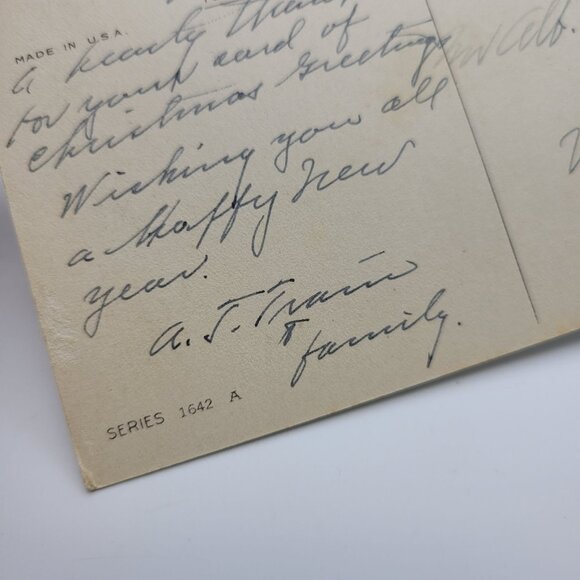 MADE IN U.S.A.
a hearty thank
for your card of
Christmas Greetings
Wishing you all
a Happy New
year.
A. J. Train
& family.
SERIES 1642 A